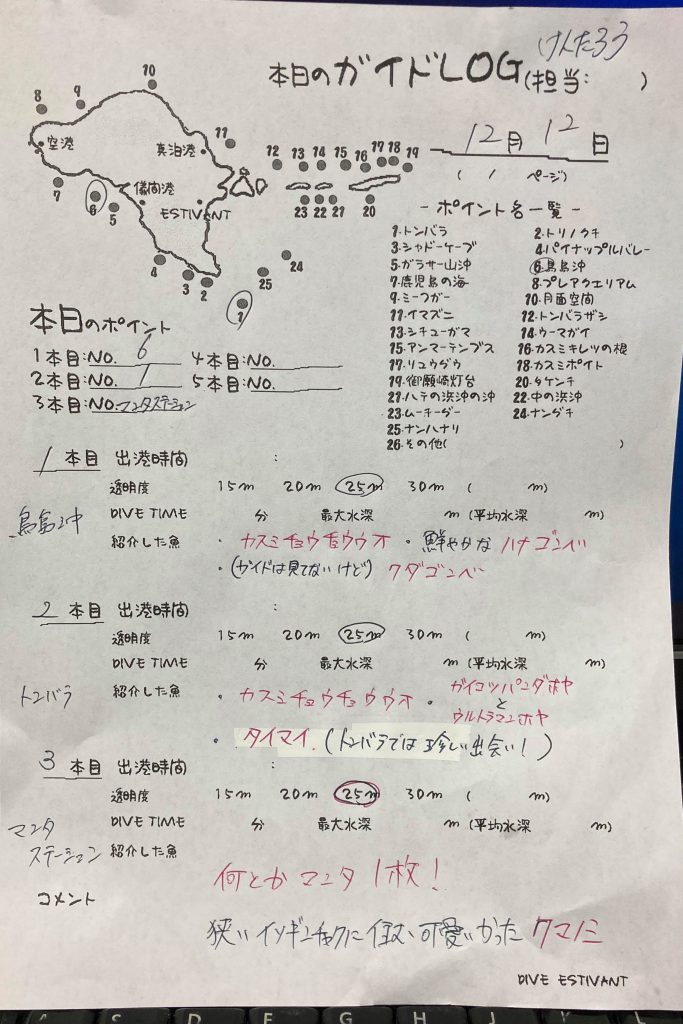 けんた33
本日のガイドLOG(担当: )
12月 12日
( 1 ページ)
10
8
9
空港
真泊港
11
12 13 14 15 16 17 18 19
7
6
5
儀間港
ESTIVANT
23 22 21 20
4
3
2
24
25
1
- ポイント名一覧 -
1.トンバラ 2.トリノクチ
3.シャドーケーブ 4.パイナップルバレー
5.ガラサー山沖 6.鳥島沖
7.鹿児島の海 8.プレアクエリアム
9.ミーフガー 10.月面空間
11.イマズニ 12.トンバラザシ
13.シチューガマ 14.ウーマガイ
15.アンマーテンプス 16.カスミキレツの根
17.リュウグウ 18.カスミポイント
19.御願崎灯台 20.タケンチ
21.ハテの浜沖の沖 22.中の浜沖
23.ムーチーダー 24.ナングチ
25.ナンハナリ
26.その他( )
本日のポイント
1本目:NO. 6 4本目:NO.
2本目:NO. 1 5本目:NO.
3本目:NO.マンタステーション
1 本目 出港時間 :
透明度 15m 20m 25m 30m ( m)
DIVE TIME 分 最大水深 m (平均水深 m)
鳥島沖
紹介した魚 ・カスミチョウチョウウオ ・鮮やかな ハナゴンベ
・(ガイドは見てないけど) クダゴンベ
2 本目 出港時間 :
透明度 15m 20m 25m 30m ( m)
DIVE TIME 分 最大水深 m (平均水深 m)
トンバラ
紹介した魚 ・カスミチョウチョウウオ ・ガイコツパンダホヤ
と
ウルトラマンホヤ
・タイマイ.(トンバラでは珍しい出会い!)
3 本目 出港時間 :
透明度 15m 20m 25m 30m ( m)
DIVE TIME 分 最大水深 m (平均水深 m)
マンタ
ステーション 紹介した魚
何とか マンタ 1枚!
コメント
狭いイソギンチャクに住む 可愛いかった クマノミ
DIVE ESTIVANT
A S D F G H J K L